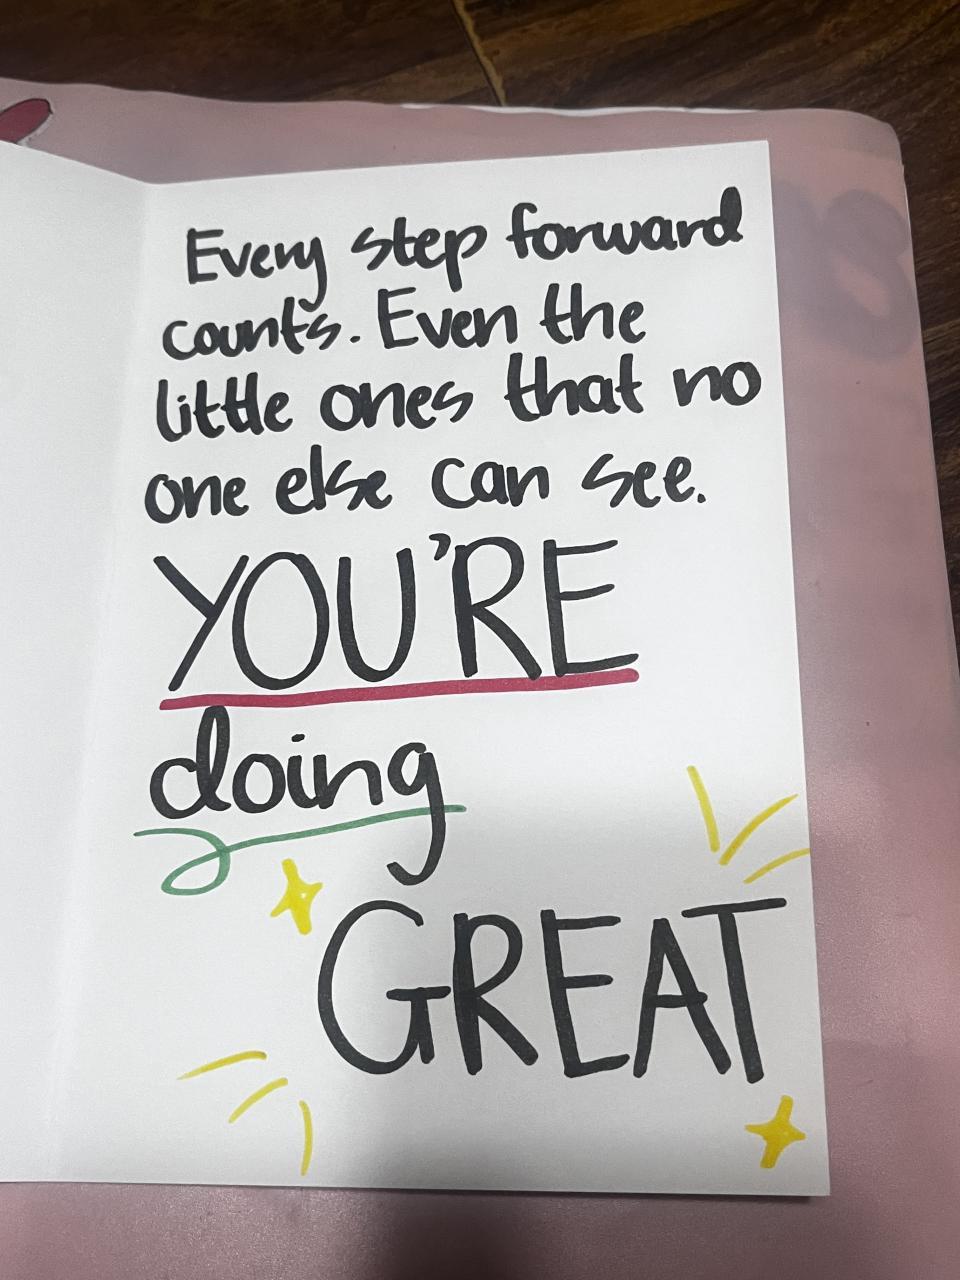 Every step forward
counts. Even the
little ones that no
one else can see.
YOU'RE
doing
GREAT